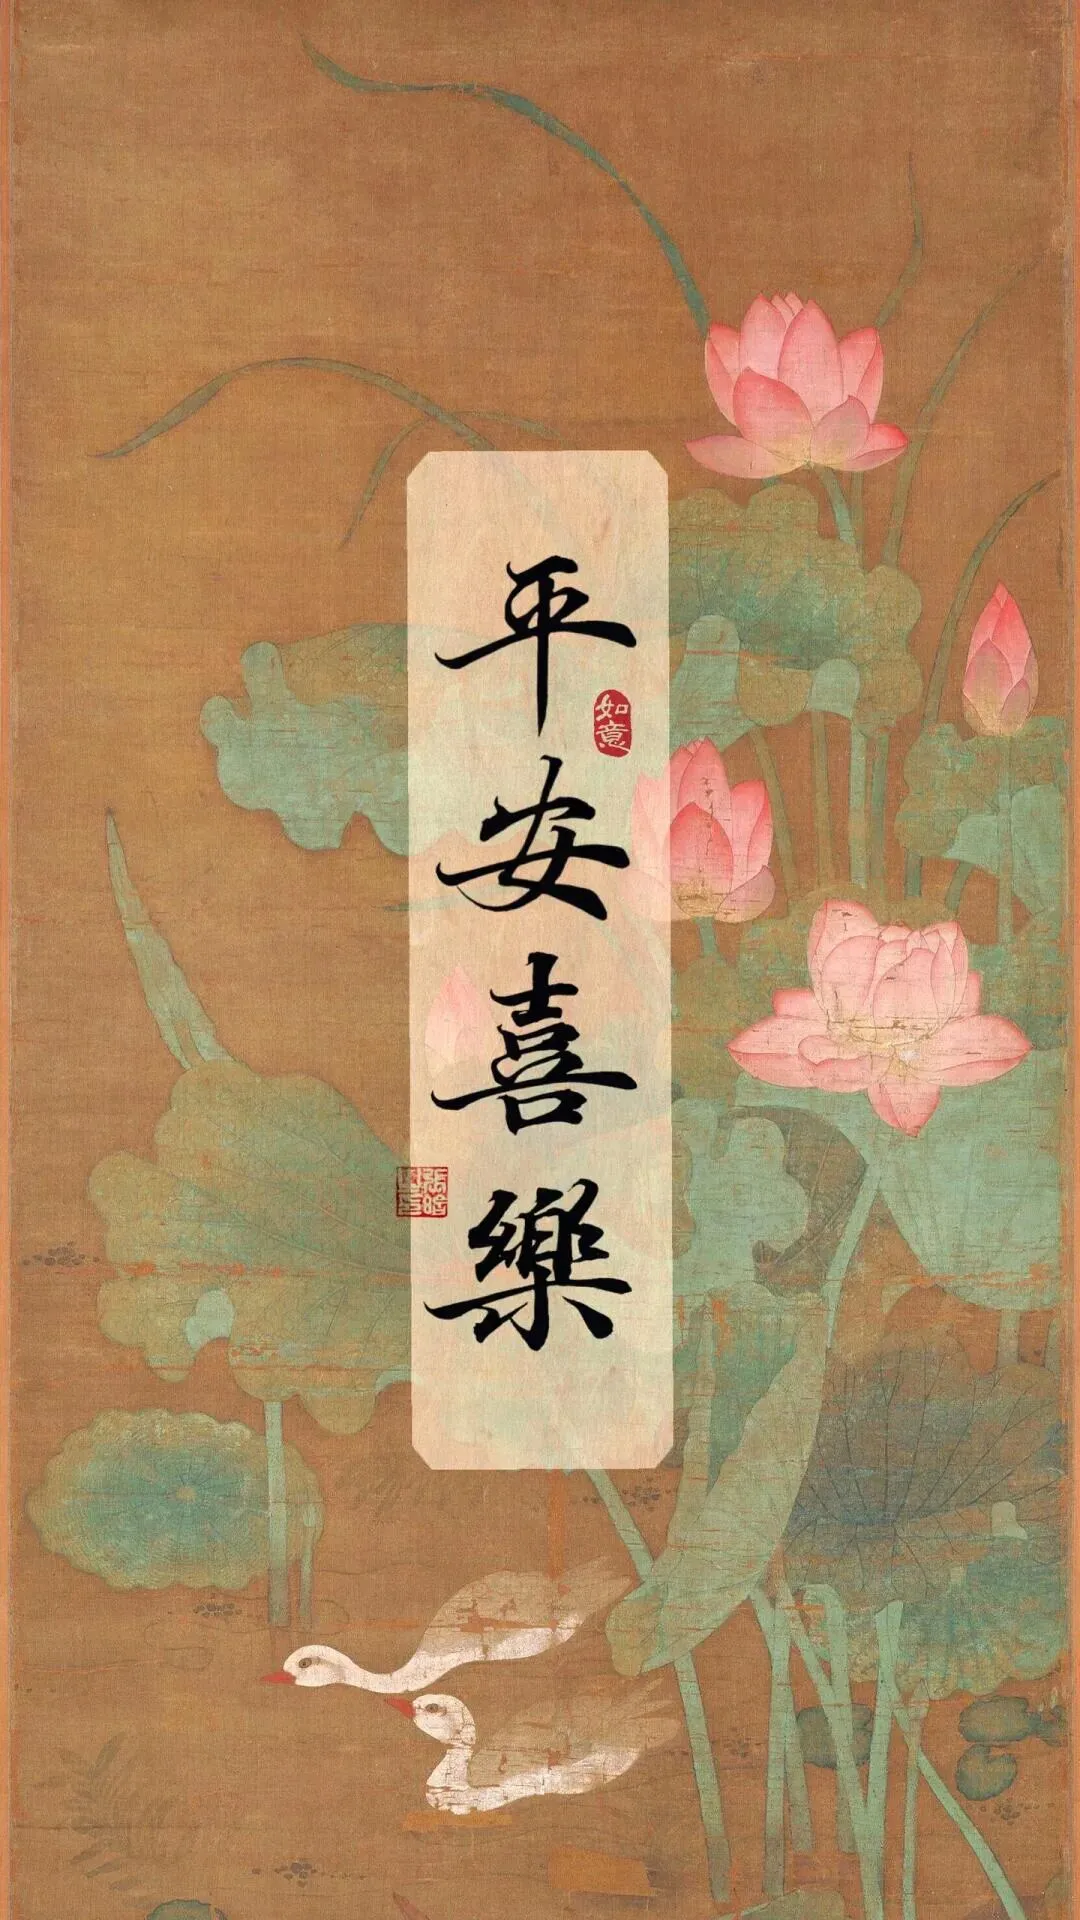 平安喜樂
如意